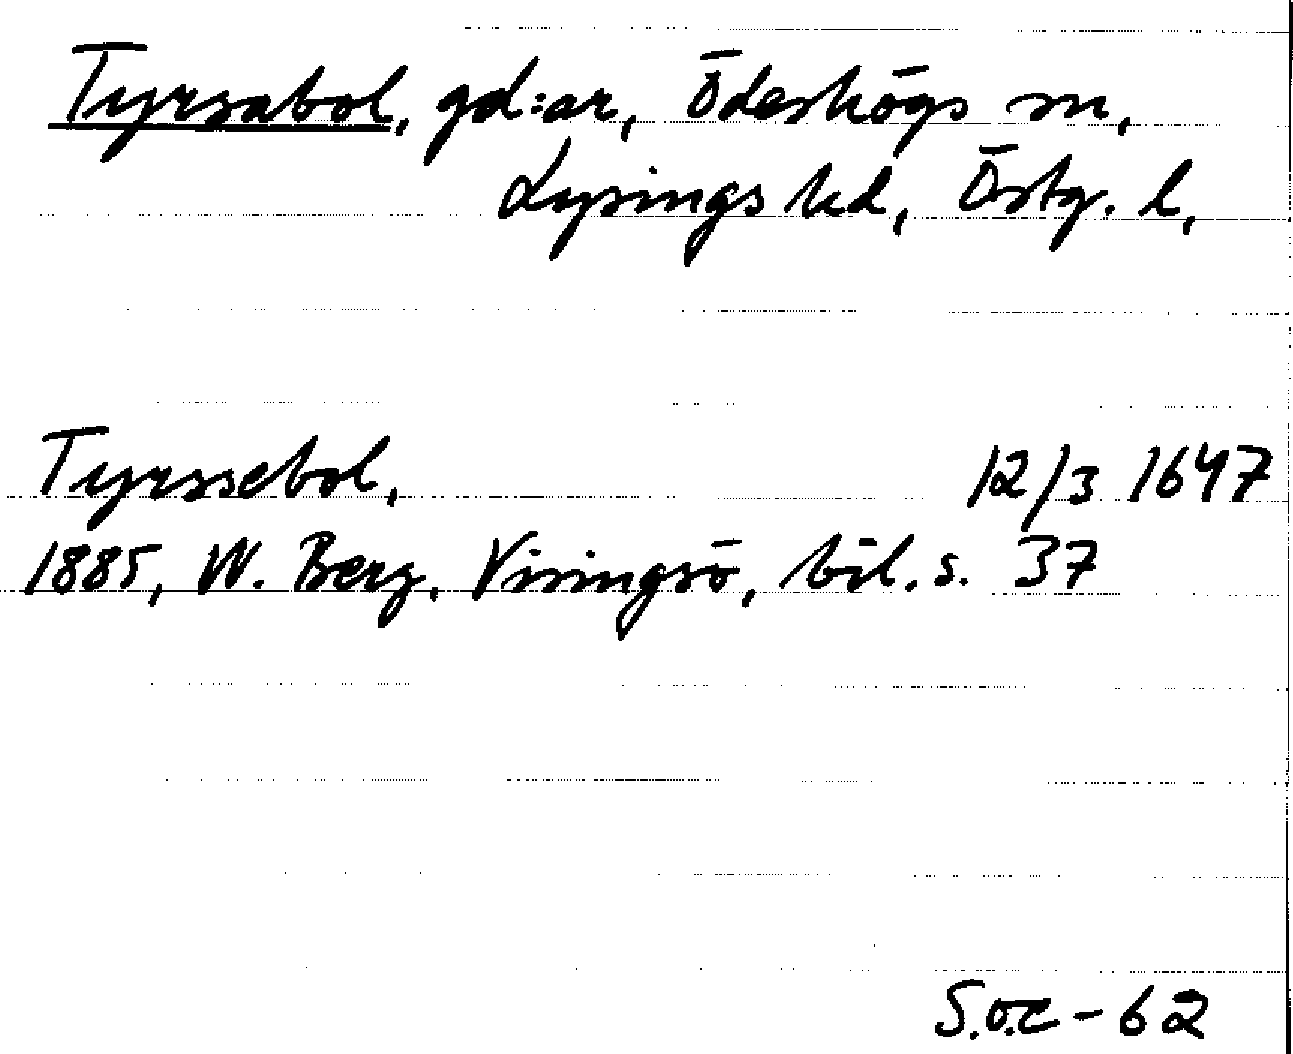 Tyrsabol, gd:ar, Ödeshögs sn,
Lysings hd, Östg. l,
Tyrssebol, 12/3 1647
1885, W. Berg, Visingsö, bil. s. 37
S.o.C-62